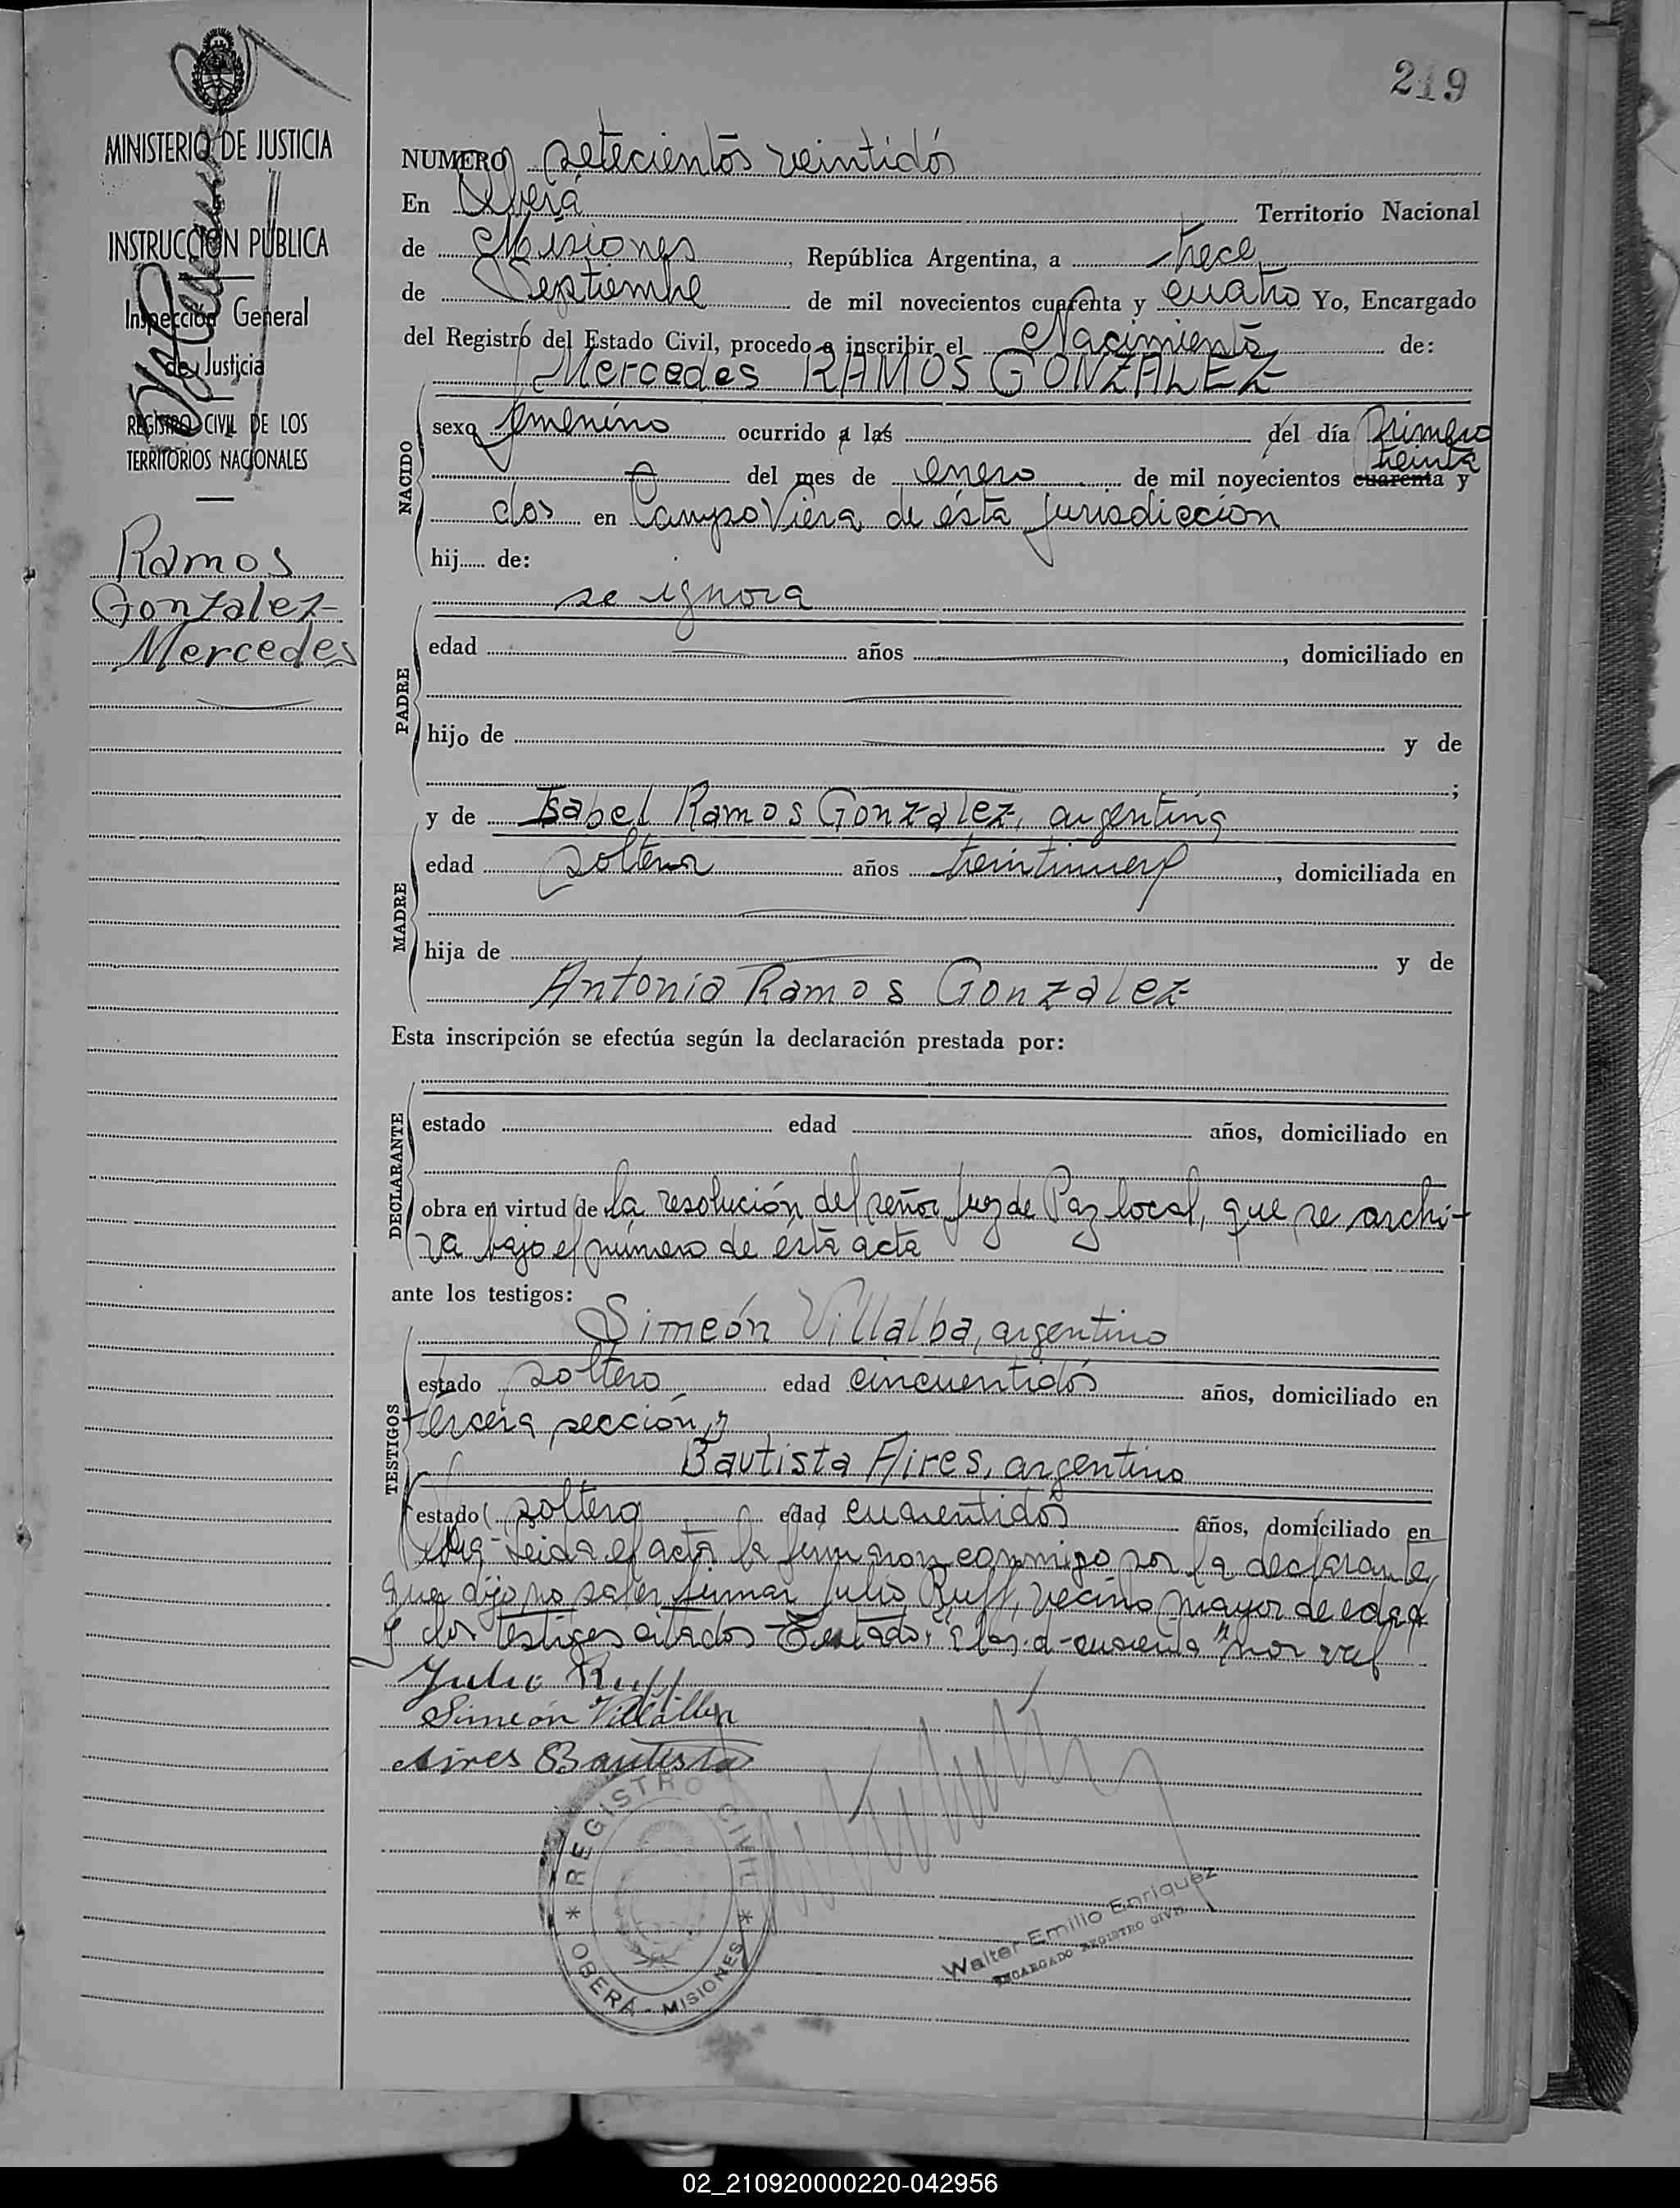 219
MINISTERIO DE JUSTICIA
INSTRUCCION PUBLICA
Inspección General
de Justicia
REGISTRO CIVIL DE LOS
TERRITORIOS NACIONALES
Ramos
Gonzalez
Mercedes
NUMERO setecientos veintidós
En Oberá Territorio Nacional
de Misiones, República Argentina, a trece
de Septiembre de mil novecientos cuarenta y cuatro Yo, Encargado
del Registro del Estado Civil, procedo a inscribir el Nacimiento de:
Mercedes RAMOS GONZALEZ
NACIDO
sexo femenino ocurrido a las del día primero
treinta
del mes de enero de mil novecientos cuarenta y
dos en Campo Viera de ésta jurisdicción
hij...... de:
se ignora
PADRE
edad años , domiciliado en
hijo de y de
;
y de Isabel Ramos Gonzalez, argentina
MADRE
edad soltera años , domiciliada en
hija de y de
Antonia Ramos Gonzalez
Esta inscripción se efectúa según la declaración prestada por:
DECLARANTE
estado edad años, domiciliado en
obra en virtud de la resolución del señor Juez de Paz local, que se archi-
va bajo el número de ésta acta
ante los testigos:
TESTIGOS
Simeón Villalba, argentino
estado soltero edad cincuentidós años, domiciliado en
tercera sección, y
Bautista Aires, argentino
estado soltero edad cuarentidós años, domiciliado en
Leida el acta la firmaron conmigo por la declarante,
que dijo no saber firmar Julio Ruff, vecino mayor de edad
y los testigos citados Testado: "a las-a-cuarenta" no val
Julio Ruff
Simeón Villalba
Aires Bautista
REGISTRO CIVIL
OBERÁ - MISIONES
Walter Emilio Enriquez
ENCARGADO REGISTRO CIVIL
02_210920000220-042956